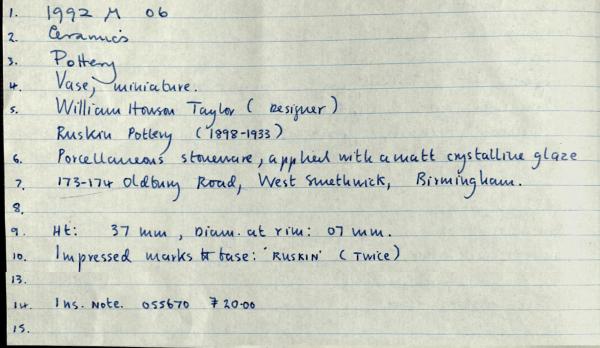 1. 1992 M 06
2. Ceramics
3. Pottery
4. Vase, miniature.
5. William Howson Taylor ( Designer )
Ruskin Pottery (1898-1933)
6. Porcellaneous stoneware, applied with a matt crystalline glaze
7. 173-174 Oldbury Road, West Smethwick, Birmingham.
8.
9. Ht: 37 mm, Diam. at rim: 07 mm.
10. Impressed marks to base: 'RUSKIN' (TWICE)
13.
14. Ins. Note. 055670 20.00
15.